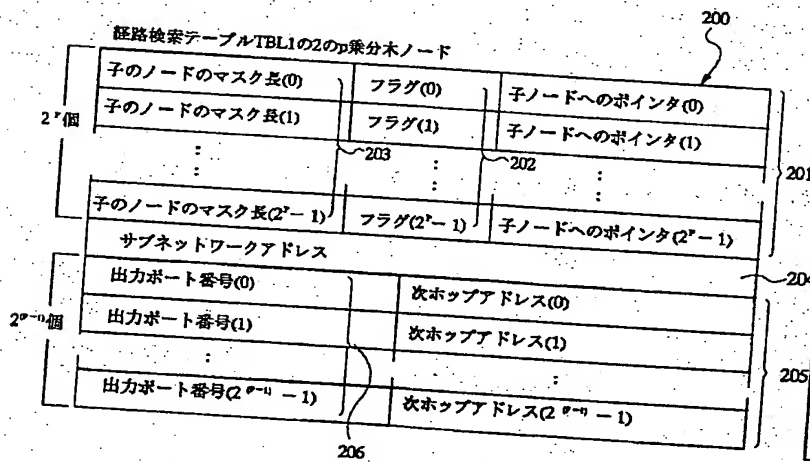 200
経路検索テーブルTBL1の2のp乗分木ノード
子のノードのマスク長(0) フラグ(0) 子ノードへのポインタ(0)
子のノードのマスク長(1) フラグ(1) 子ノードへのポインタ(1)
2^p個
: : :
203 202 201
: : :
子のノードのマスク長(2^p−1) フラグ(2^p−1) 子ノードへのポインタ(2^p−1)
サブネットワークアドレス
204
出力ポート番号(0) 次ホップアドレス(0)
2^(p-1)個
出力ポート番号(1) 次ホップアドレス(1)
: :
205
出力ポート番号(2^(p-1)−1) 次ホップアドレス(2^(p-1)−1)
206